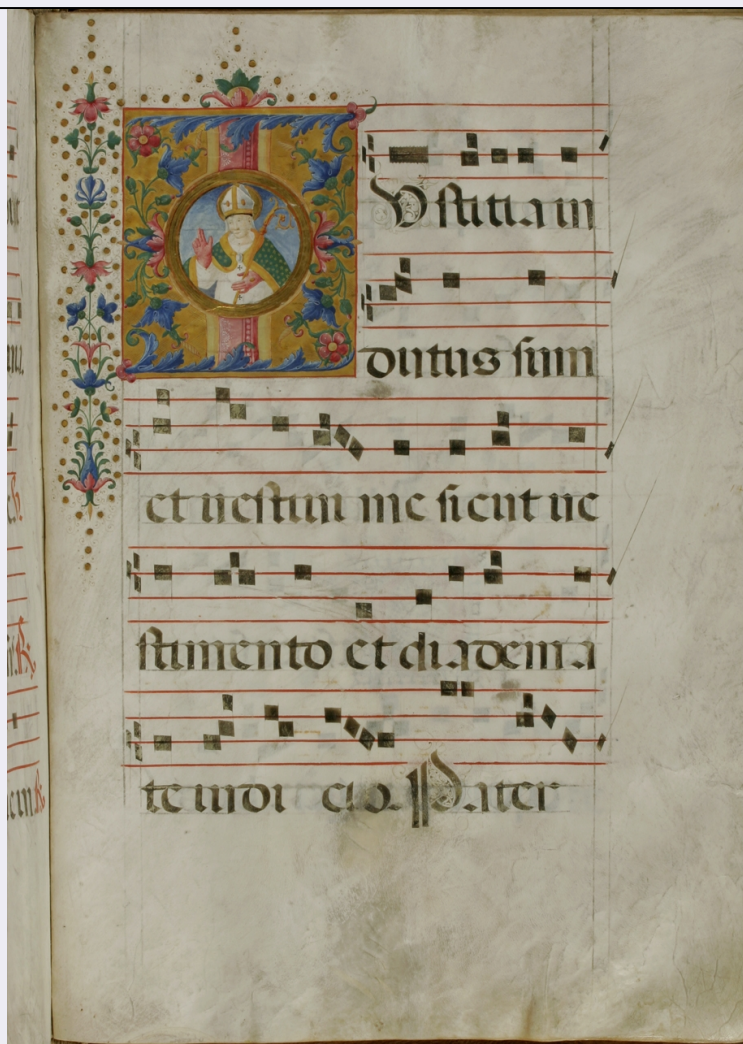 IUstitia in
dutus sum
et uestiui me sicut ue
stimento et diadema
te iudi cio. Pater